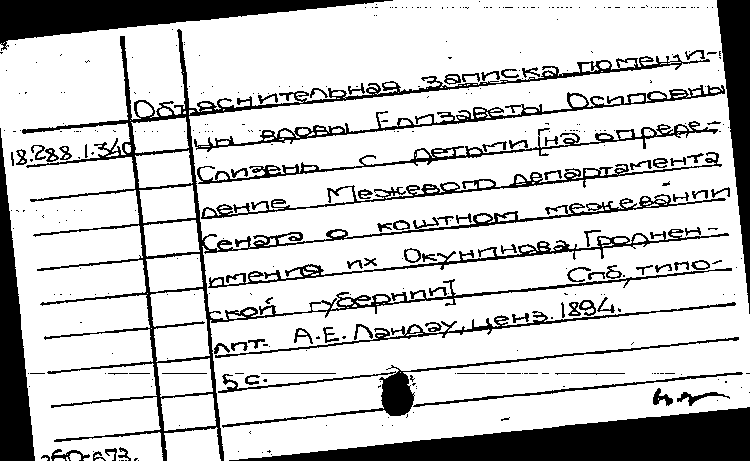 Объяснительная записка помещи-
18.288.1.340 цы вдовы Елизаветы Осиповны
Слизень с детьми [на опреде-
ление Межевого департамента
Сената о коштном межевании
имения их Окунинова, Гроднен-
ской губернии] Спб., типо-
лит. А.Е. Ландау, ценз. 1894.
5 с.
260-673.